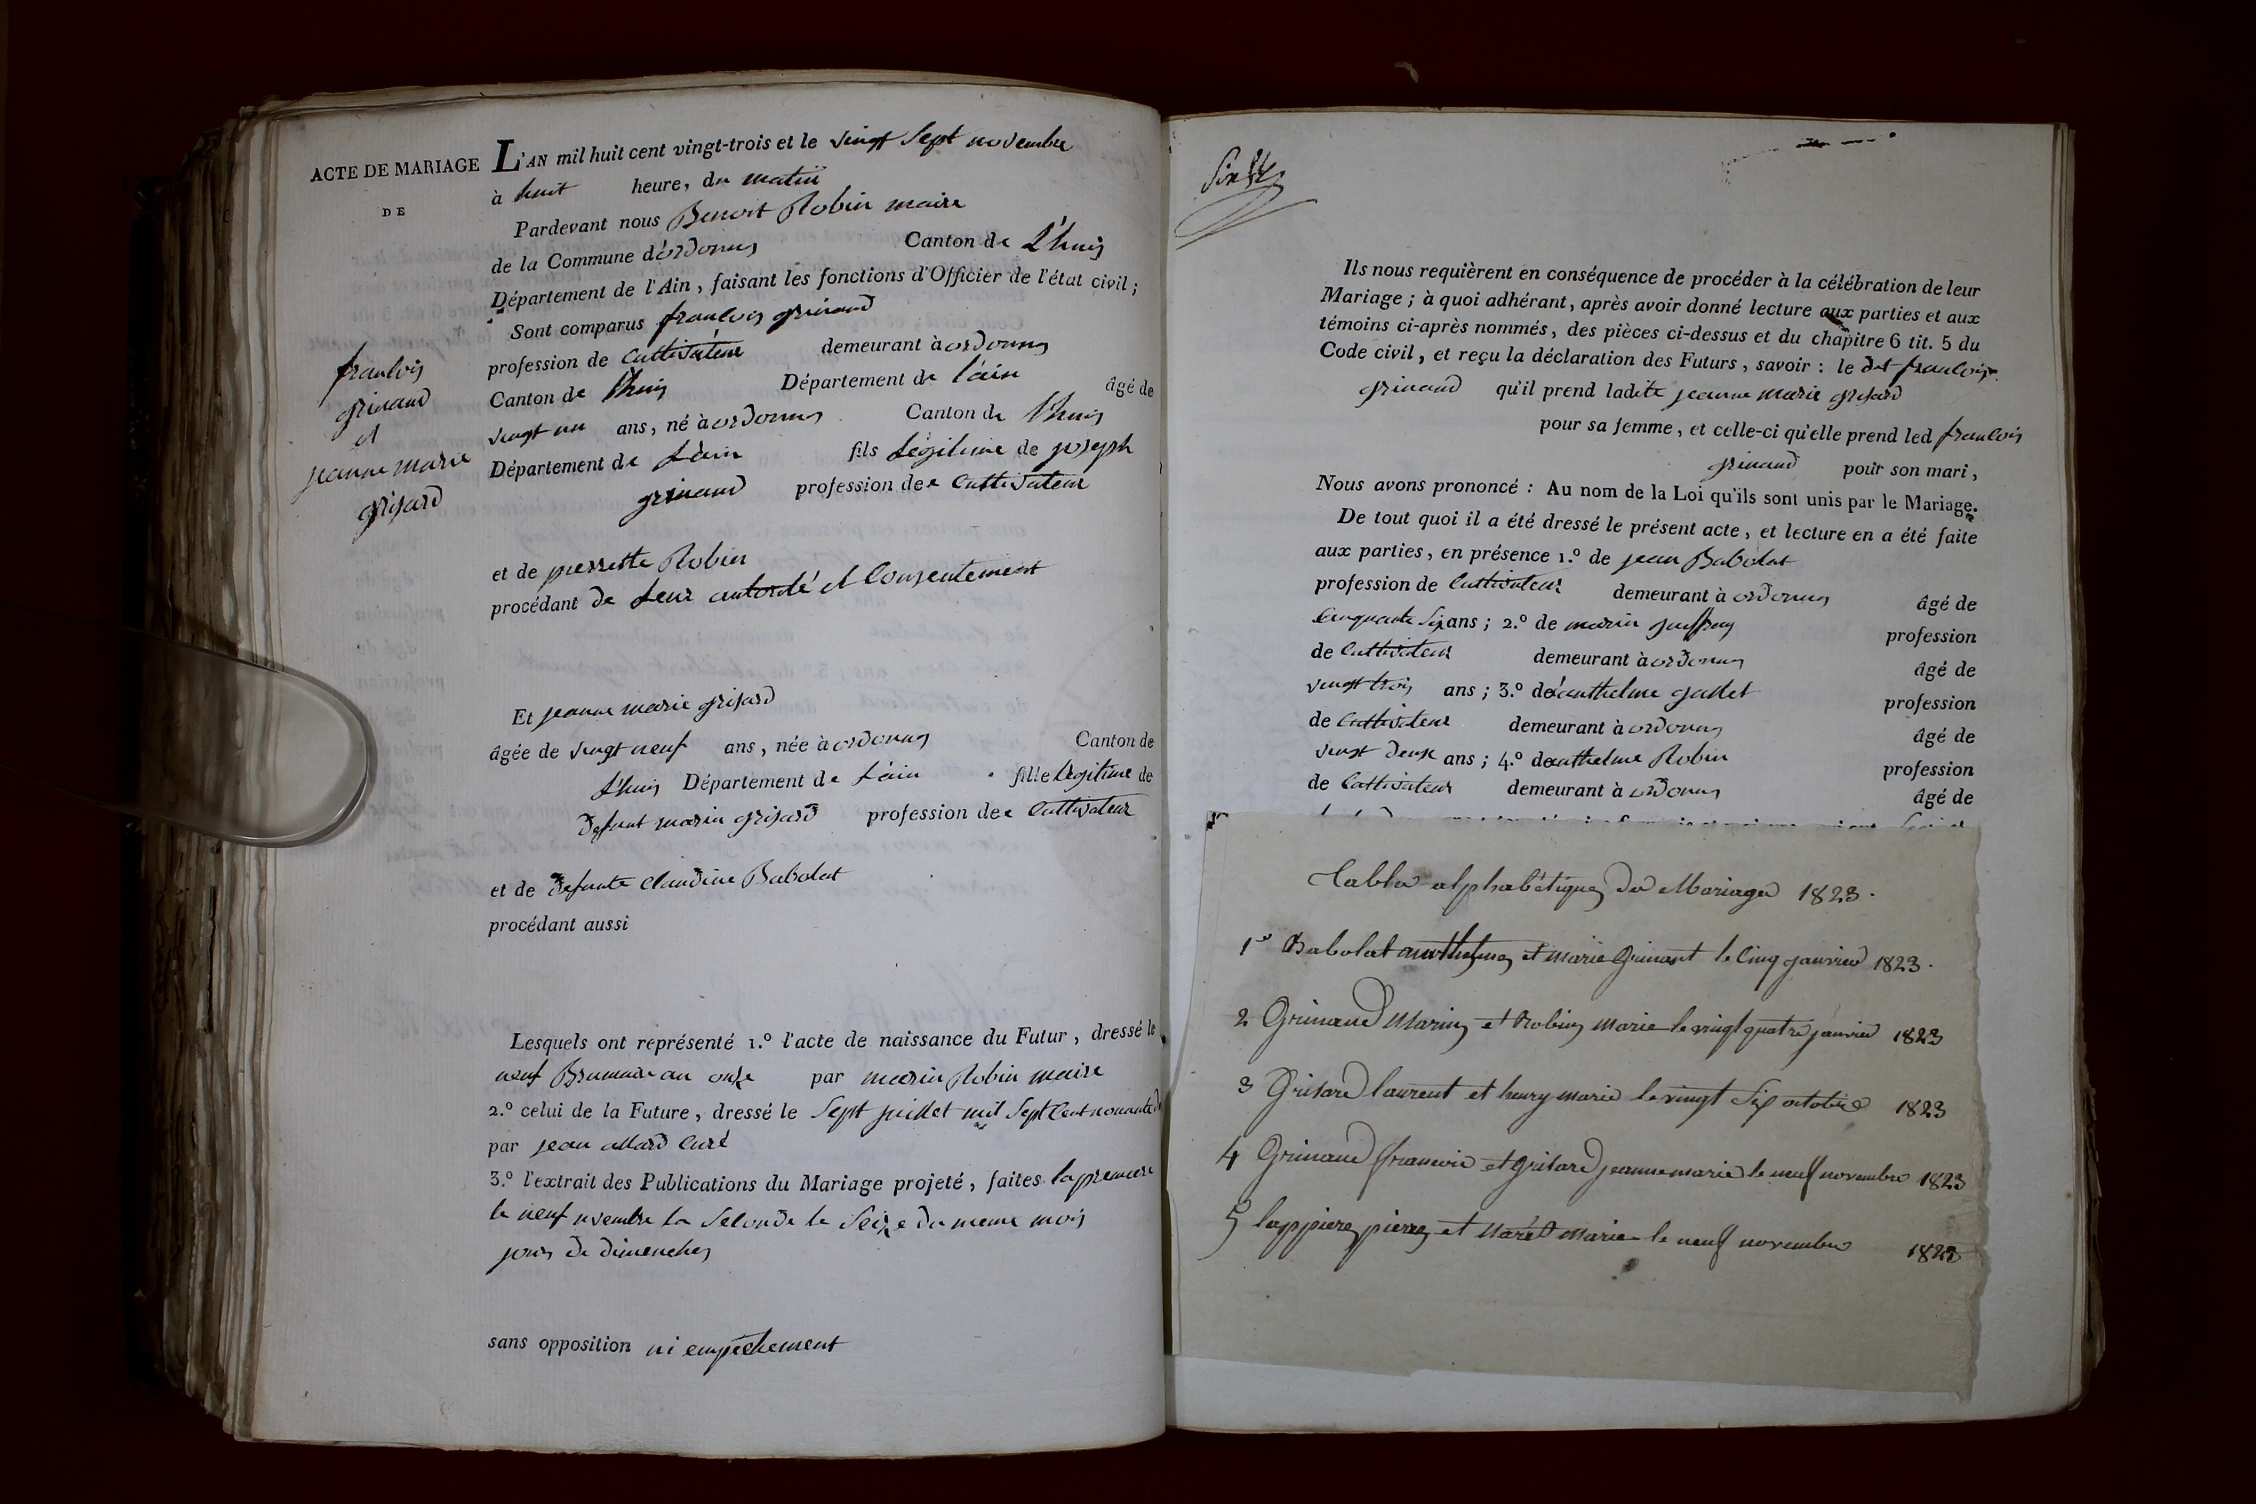 ACTE DE MARIAGE
DE
francois
grinand
et
jeanne marie
grisard
L'AN mil huit cent vingt-trois et le vingt sept novembre
à huit heure, du matin
Pardevant nous Benoit Robin maire
de la Commune d'ordonnas Canton de L'huis
Département de l'Ain, faisant les fonctions d'Officier de l'état civil;
Sont comparus francois grinand
profession de cultivateur demeurant à ordonnas
Canton de l'huis Département de l'ain âgé de
vingt un ans, né à ordonnas Canton de l'huis
Département de L'ain fils Légitime de joseph
grinand profession de cultivateur
et de pierrette Robin
procédant de Leur autorité et consentement
Et jeanne marie grisard
âgée de vingt neuf ans, née à ordonnas Canton de
L'huis Département de L'ain fille légitime de
defunt marin grisard profession de cultivateur
et de defunte claudine Babolat
procédant aussi
Lesquels ont représenté 1.º l'acte de naissance du Futur, dressé le
neuf Brumaire an onze par marin Robin maire
2.º celui de la Future, dressé le sept juillet mil sept cent nonante
par jean allard curé
3.º l'extrait des Publications du Mariage projeté, faites la premiere
le neuf nvembre la seconde le seize du meme mois
jours de dimenches
sans opposition ni empêchement
Ils nous requièrent en conséquence de procéder à la célébration de leur
Mariage; à quoi adhérant, après avoir donné lecture aux parties et aux
témoins ci-après nommés, des pièces ci-dessus et du chapitre 6 tit. 5 du
Code civil, et reçu la déclaration des Futurs, savoir: le dit francois
grinand qu'il prend ladite jeanne marie grisard
pour sa femme, et celle-ci qu'elle prend led francois
grinand pour son mari,
Nous avons prononcé: Au nom de la Loi qu'ils sont unis par le Mariage.
De tout quoi il a été dressé le présent acte, et lecture en a été faite
aux parties, en présence 1.º de jean Babolat
profession de cultivateur demeurant à ordonnas âgé de
cinquante six ans; 2.º de marin juffray profession
de cultivateur demeurant à ordonnas âgé de
vingt trois ans; 3.º de anthelme gallet profession
de cultivateur demeurant à ordonnas âgé de
vingt deux ans; 4.º de anthelme Robin profession
de cultivateur demeurant à ordonnas âgé de
Table alphabétique de Mariage 1823.
1º Babolat anthelme et marie Grinant le cinq janvier 1823.
2 Grinand Marin et Robin Marie le vingt quatre janvier 1823
3 Grisard laurent et henry marie le vingt six octobre 1823
4 Grinand francois et Grisard jeanne marie le neuf novembre 1823
5 lappiere pierre et Maret Marie le neuf novembre 1823